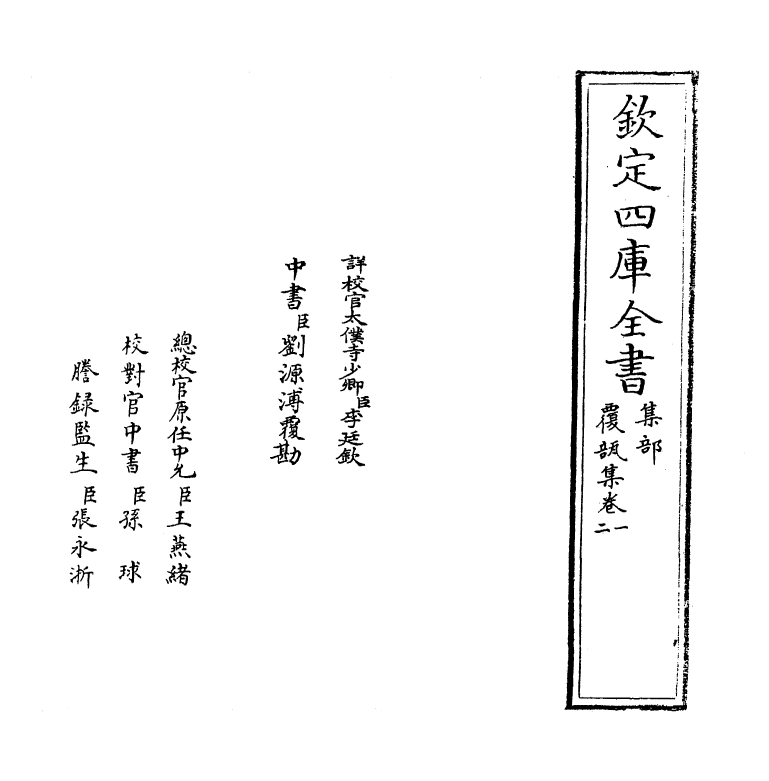 欽定四庫全書
集部
覆瓿集卷一
二
詳校官太僕寺少卿臣李廷欽
中書臣劉源溥覆勘
總校官原任中允臣王燕緒
校對官中書臣孫球
謄録監生臣張永淅